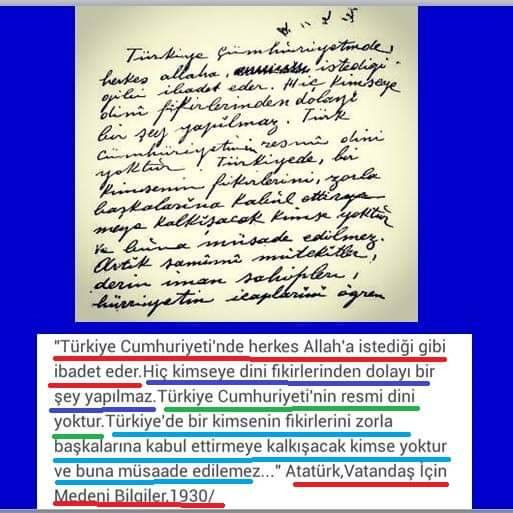 Türkiye Cümhüriyetinde,
herkes allaha, istediği
gibi ibadet eder. Hiç kimseye
dinî fikirlerinden dolayi
bir şey yapılmaz. Türk
cümhüriyetinin resmî dini
yoktur. Türkiyede, bir
kimsenin fikirlerini, zorla
başkalarına kabül ettirme
meye kalkışacak kimse yoktur
ve buna müsade edilmez.
Artık samimî mütekitler,
derin iman sahipleri,
hürriyetin icaplarını öğren
"Türkiye Cumhuriyeti'nde herkes Allah'a istediği gibi
ibadet eder.Hiç kimseye dini fikirlerinden dolayı bir
şey yapılmaz.Türkiye Cumhuriyeti'nin resmi dini
yoktur.Türkiye'de bir kimsenin fikirlerini zorla
başkalarına kabul ettirmeye kalkışacak kimse yoktur
ve buna müsaade edilemez..." Atatürk,Vatandaş İçin
Medeni Bilgiler,1930/